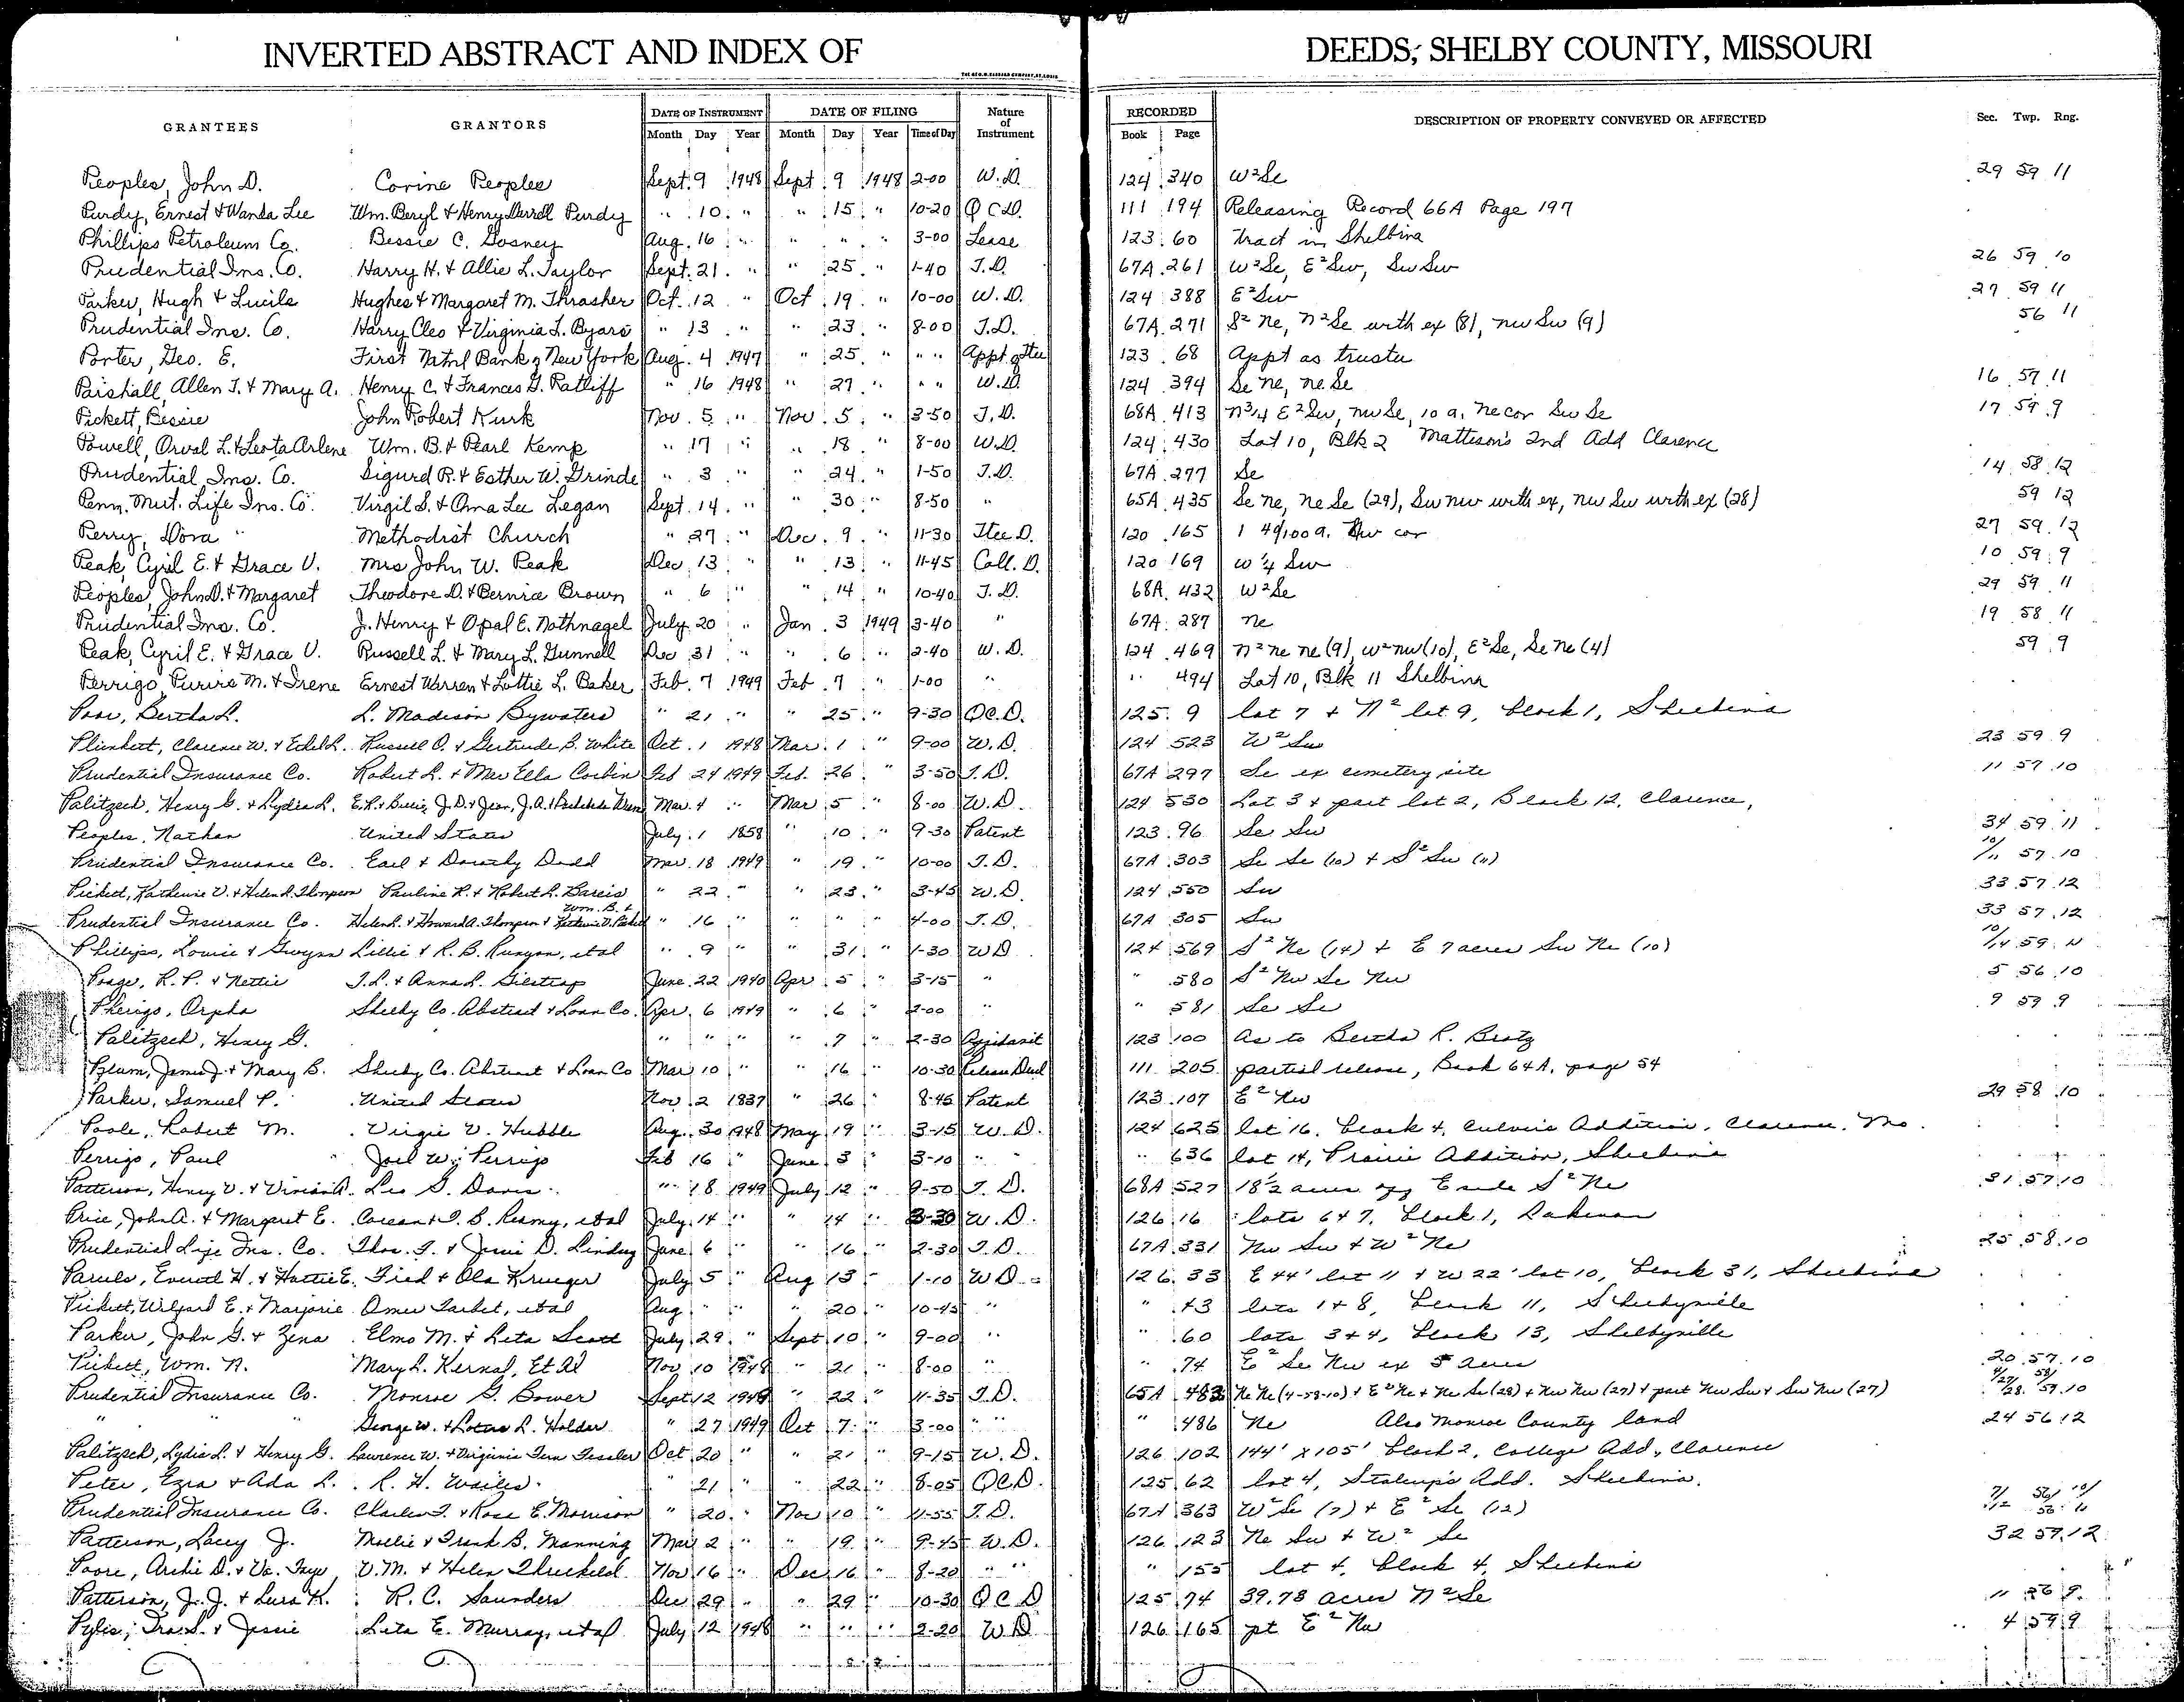 INVERTED ABSTRACT AND INDEX OF DEEDS, SHELBY COUNTY, MISSOURI
GRANTEES GRANTORS DATE OF INSTRUMENT DATE OF FILING Nature of Instrument RECORDED DESCRIPTION OF PROPERTY CONVEYED OR AFFECTED Sec. Twp. Rng.
Month Day Year Month Day Year Time of Day Book Page
Peoples, John D. Corine Peoples Sept. 9 1948 Sept. 9 1948 2-00 W.D. 124 340 W²Se 29 59 11
Purdy, Ernest & Wanda Lee Wm. Beryl & Henry Derrell Purdy " 10 " " 15 " 10-20 Q C D. 111 194 Releasing Record 66A Page 197
Phillips Petroleum Co. Bessie C. Gosney Aug. 16 " " " " 3-00 Lease 123 60 Tract in Shelbina
Prudential Ins. Co. Harry H. & Allie L. Taylor Sept. 21 " " 25 " 1-40 T.D. 67A 261 W²Se, E²Sw, Sw Sw 26 59 10
Parker, Hugh & Lucile Hughes & Margaret M. Thrasher Oct. 12 " Oct. 19 " 10-00 W.D. 124 388 E²Sw 27 59 11
Prudential Ins. Co. Harry Cleo & Virginia L. Byars " 13 " " 23 " 8-00 T.D. 67A 271 S² Ne, N²Se with ex (8), nw Sw (9) 56 11
Porter, Geo. E. First Natnl Bank of New York Aug. 4 1947 " 25 " " " Appt of Ttee 123 68 Appt as trustee
Parshall, Allen T. & Mary A. Henry C. & Frances G. Ratliff " 16 1948 " 27 " " " W.D. 124 394 Se ne, ne Se 16 57 11
Pickett, Bessie John Robert Kurk Nov. 5 " Nov. 5 " 3-50 T.D. 68A 413 N 3/4 E²Sw, nw Se, 10 a. ne cor Sw Se 17 59 9
Powell, Orval L. & Leota Arlene Wm. B. & Pearl Kemp " 17 " " 18 " 8-00 W.D. 124 430 Lot 10, Blk 2 Mattison's 2nd Add Clarence
Prudential Ins. Co. Sigurd R. & Esther W. Grinde " 3 " " 24 1-50 T.D. 67A 277 Se 14 58 12
Penn. Mut. Life Ins. Co. Virgil S. & Oma Lee Legan Sept. 14 " " 30 " 8-50 " 65A 435 Se ne, ne Se (29), Sw nw with ex, nw Sw with ex (28) 59 12
Perry, Dora Methodist Church " 27 " Dec. 9 " 11-30 Ttee D. 120 165 1 49/100 a. cor 27 59 12
Peak, Cyril E. & Grace V. Mrs John W. Peak Dec. 13 " " 13 " 11-45 Coll. D. 120 169 W ¼ Sw 10 59 9
Peoples, John D. & Margaret Theodore D. & Bernice Brown " 6 " " 14 " 10-40 T.D. 68A 432 W²Se 29 59 11
Prudential Ins. Co. J. Henry & Opal E. Nothnagel July 20 " Jan. 3 1949 3-40 " 67A 287 ne 19 58 11
Peak, Cyril E. & Grace V. Russell L. & Mary L. Gunnell Dec 31 " " 6 " 2-40 W.D. 124 469 N² ne ne (9), W² nw (10), E²Se, Se ne (4) 59 9
Perrigo, M. & Irene Ernest Warren & Lottie L. Baker Feb. 7 1949 Feb. 7 " 1-00 " " 494 Lot 10, Blk 11 Shelbina
Poor, Bertha L. L. Madison Bywaters " 21 " " 25 " 9-30 QC.D. 125 9 lot 7 & N² lot 9, block 1, Shelbina
Plunkett, Clarence W. & Ethel L. Russell O. & Gertrude B. White Oct. 1 1948 Mar. 1 " 9-00 W.D. 124 523 W²Sw 23 59 9
Prudential Insurance Co. Robert L. & Ella Corbin Feb 24 1949 Feb. 26 " 3-50 T.D. 67A 297 Se ex cemetery site 11 57 10
Palitzsch, Henry G. & Lydia L. Mar. 4 " Mar 5 " 8-00 W.D. 124 530 Lot 3 & part lot 2, Block 12, Clarence,
Peoples, Nathan United States July 1 1858 " 10 " 9-30 Patent 123 96 Se Sw 34 59 11
Prudential Insurance Co. Earl & Dorothy Dodd Mar. 18 1949 " 19 " 10-00 T.D. 67A 303 Se Se (10) & S²Sw (11) 10/11 57 10
Pickett, Katherine V. & Helen L. Thompson Pauline R. & Robert L. " 22 " " 23 " 3-45 W.D. 124 550 Sw 33 57 12
Prudential Insurance Co. Helen L. & Howard A. Thompson & Wm. B. & Katherine V. Pickett " 16 " " " " 4-00 T.D. 67A 305 Sw 33 57 12
Phillips, Lownie & Gwynn Lillie & R. B. Runyon, etal " 9 " " 31 " 1-30 WD 124 569 S² Ne (14) & E 7 acres Sw Ne (10) 10/14 59 11
Poage, R. P. & Nettie T.L. & Anna L. Gilstrap June 22 1940 Apr. 5 " 3-15 " " 580 S² Nw Se Nw 5 56 10
Pherigo, Orpha Shelby Co. Abstract & Loan Co. Apr. 6 1949 " 6 " 2-00 " " 581 Se Se 9 59 9
Palitzsch, Henry G. " " " " 7 " 2-30 Affidavit 123 100 As to Bertha R.
James J. & Mary B. Shelby Co. Abstract & Loan Co Mar 10 " " 16 " 10-30 Release Deed 111 205 partial release, Book 64A, page 54
Parker, Samuel P. United States Nov. 2 1837 " 26 " 8-45 Patent 123 107 E² Nw 29 58 10
Poole, Robert M. Virgie V. Hubble Aug. 30 1948 May 19 " 3-15 W.D. 124 625 lot 16, block 4, Culver's Addition, Clarence, Mo.
Perrigo, Paul Joel W. Perrigo Feb 16 " June 3 " 3-10 " " 636 lot 14, Prairie Addition, Shelbina
Patterson, Henry V. & Vivian A. Leo G. Davis " 18 1949 July 12 " 9-50 T.D. 68A 527 18½ acres off E side S² Ne 31 57 10
Price, John A. & Margaret E. & T. B. Reamy, etal July 14 " " 14 " 3-30 W.D. 126 16 lots 6 & 7, block 1, Lakenan
Prudential Life Ins. Co. Thos. T. & D. Lindsey June 6 " " 16 " 2-30 T.D. 67A 331 Nw Sw & W² Ne 25 58 10
Everett H. & Hattie E. Fred & Ola Krueger July 5 " Aug 13 " 1-10 WD 126 33 E 44' lot 11 & W 22' lot 10, block 31, Shelbina
Pickett, Wilford E. & Marjorie Omer Tarbet, etal Aug " " " 20 " 10-45 " " 43 lots 1 & 8, block 11, Shelbyville
Parker, John G. & Zena Elmo M. & Leta Scott July 29 " Sept 10 " 9-00 " " 60 lots 3 & 4, block 13, Shelbyville
Pickett, Wm. N. Mary L. Kernal, Et Al Nov. 10 1948 " 21 " 8-00 " " 74 E² Se Nw ex 5 acres 20 57 10
Prudential Insurance Co. Monroe G. Bower Sept 12 1949 " 22 " 11-35 T.D. 65A 483 Ne Ne (4-58-10) & E² Ne & Ne Se (28) & Nw Nw (27) & part Nw Sw & Sw Nw (27) 4/27/28 58/59 10
" " George W. & L. Holder " 27 1949 Oct 7 " 3-00 " " 486 Ne Also Monroe County land 24 56 12
Palitzsch, Lydia L. & Henry G. Lawrence W. & Virginia Fern Oct 20 " " 21 " 9-15 W.D. 126 102 144' x 105' block 2, College Add., Clarence
Peter, Ezra & Ada L. R. H. Wailes " 21 " 22 " 8-05 QCD. 125 62 lot 4, Stalcup's Add. Shelbina.
Prudential Insurance Co. Charles T. & Rosa E. Morrison " 20 " Nov 10 " 11-55 T.D. 67A 363 W² Se (7) & E² Se (12) 7/12 56/56 10/11
Patterson, Lacey J. Mollie & Frank B. Manning Mar 2 " " 19 " 9-45 W.D. 126 123 Ne Sw & W² Se 32 57 12
Poore, Archie D. & Va. Faye V.M. & Helen Threlkeld Nov 16 " Dec 16 " 8-20 " " 155 lot 4, block 4, Shelbina
Patterson, J. J. & Lura K. R. C. Saunders Dec 29 " " 29 " 10-30 Q C D 125 74 39.78 acres N² Se 11
Pyles, Ira S. & Jessie Leta E. Murray, etal July 12 1948 " " " 2-20 W.D. 126 165 pt E² Nw 4 59 9